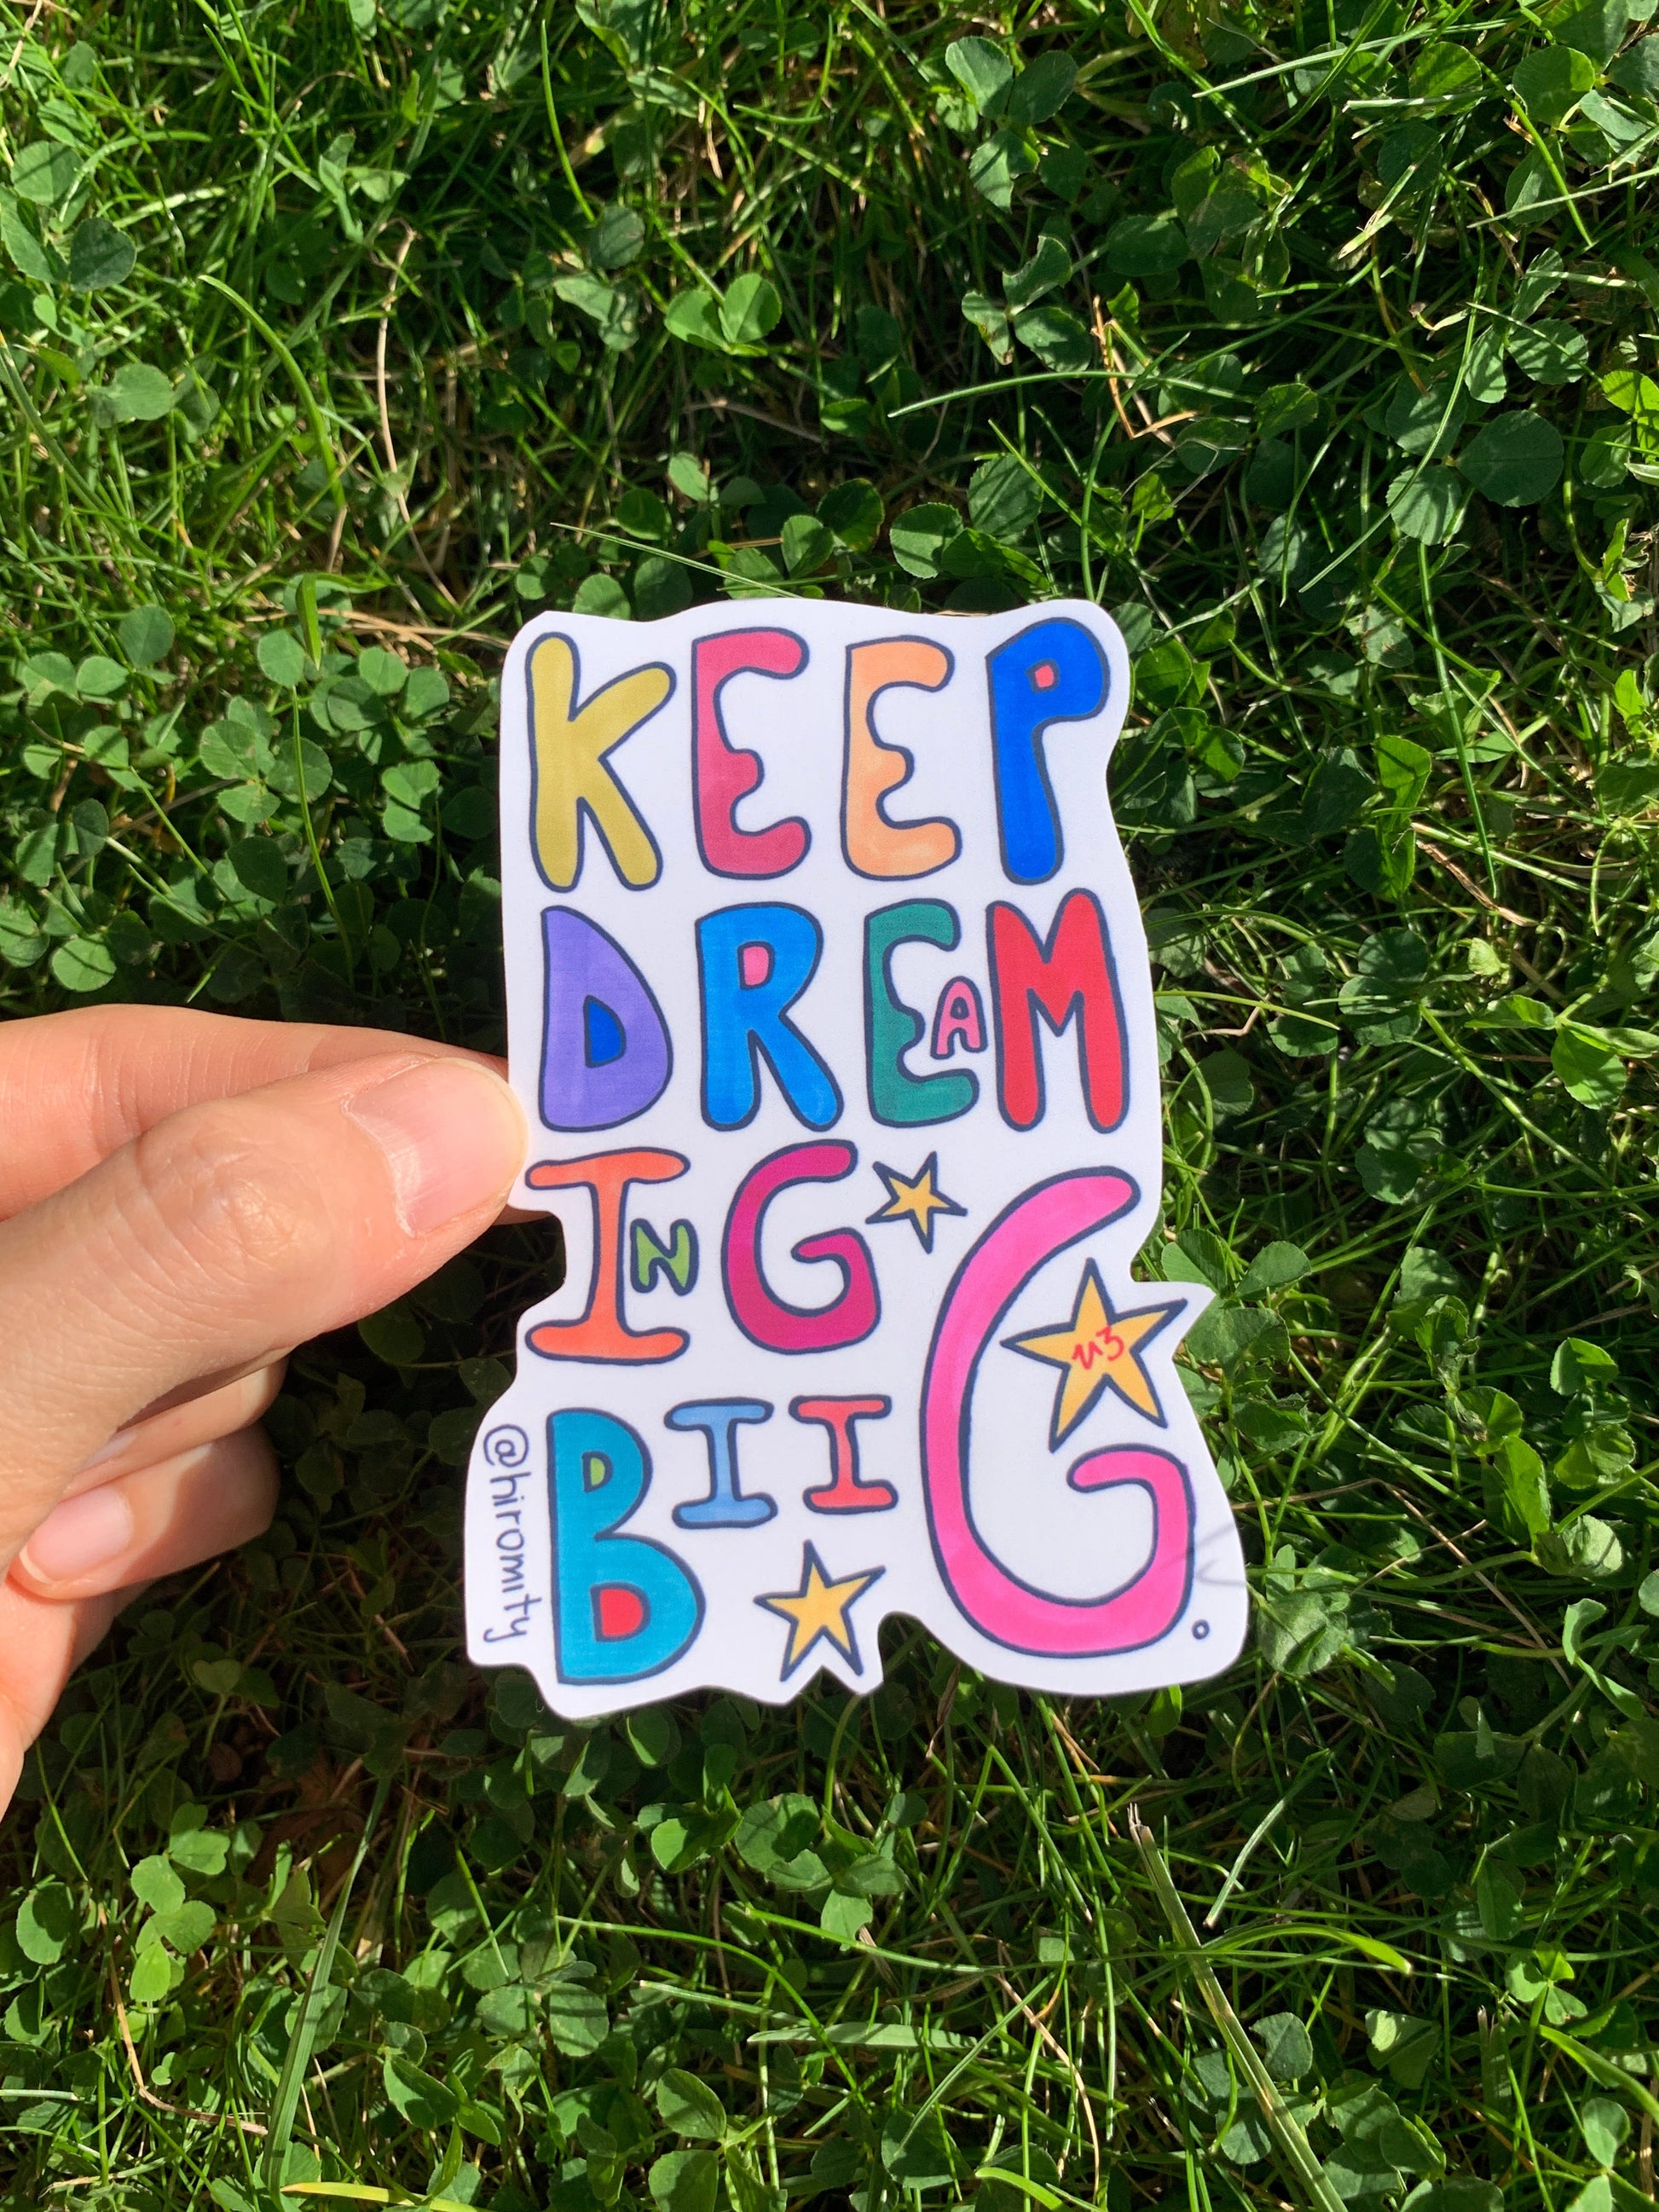 KEEP
DREAM
ING
BIIG.
@hiromity